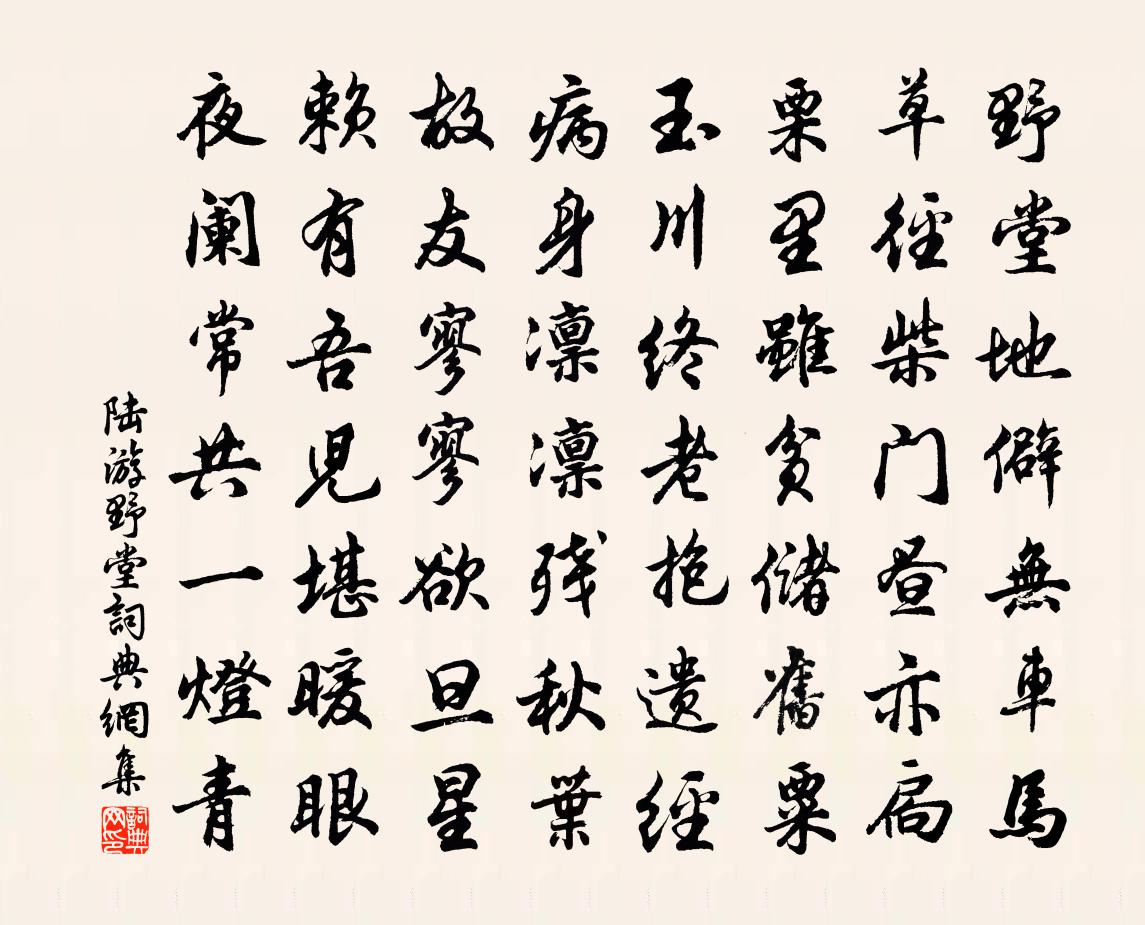 野堂地僻無車馬
草徑柴门晝亦扃
栗里雖貧儲舊粟
玉川终老抱遗經
病身凛凛残秋葉
故友寥寥欲旦星
赖有吾児堪暖眼
夜阑常共一燈青
陆游野堂詞典網集
詞典网印